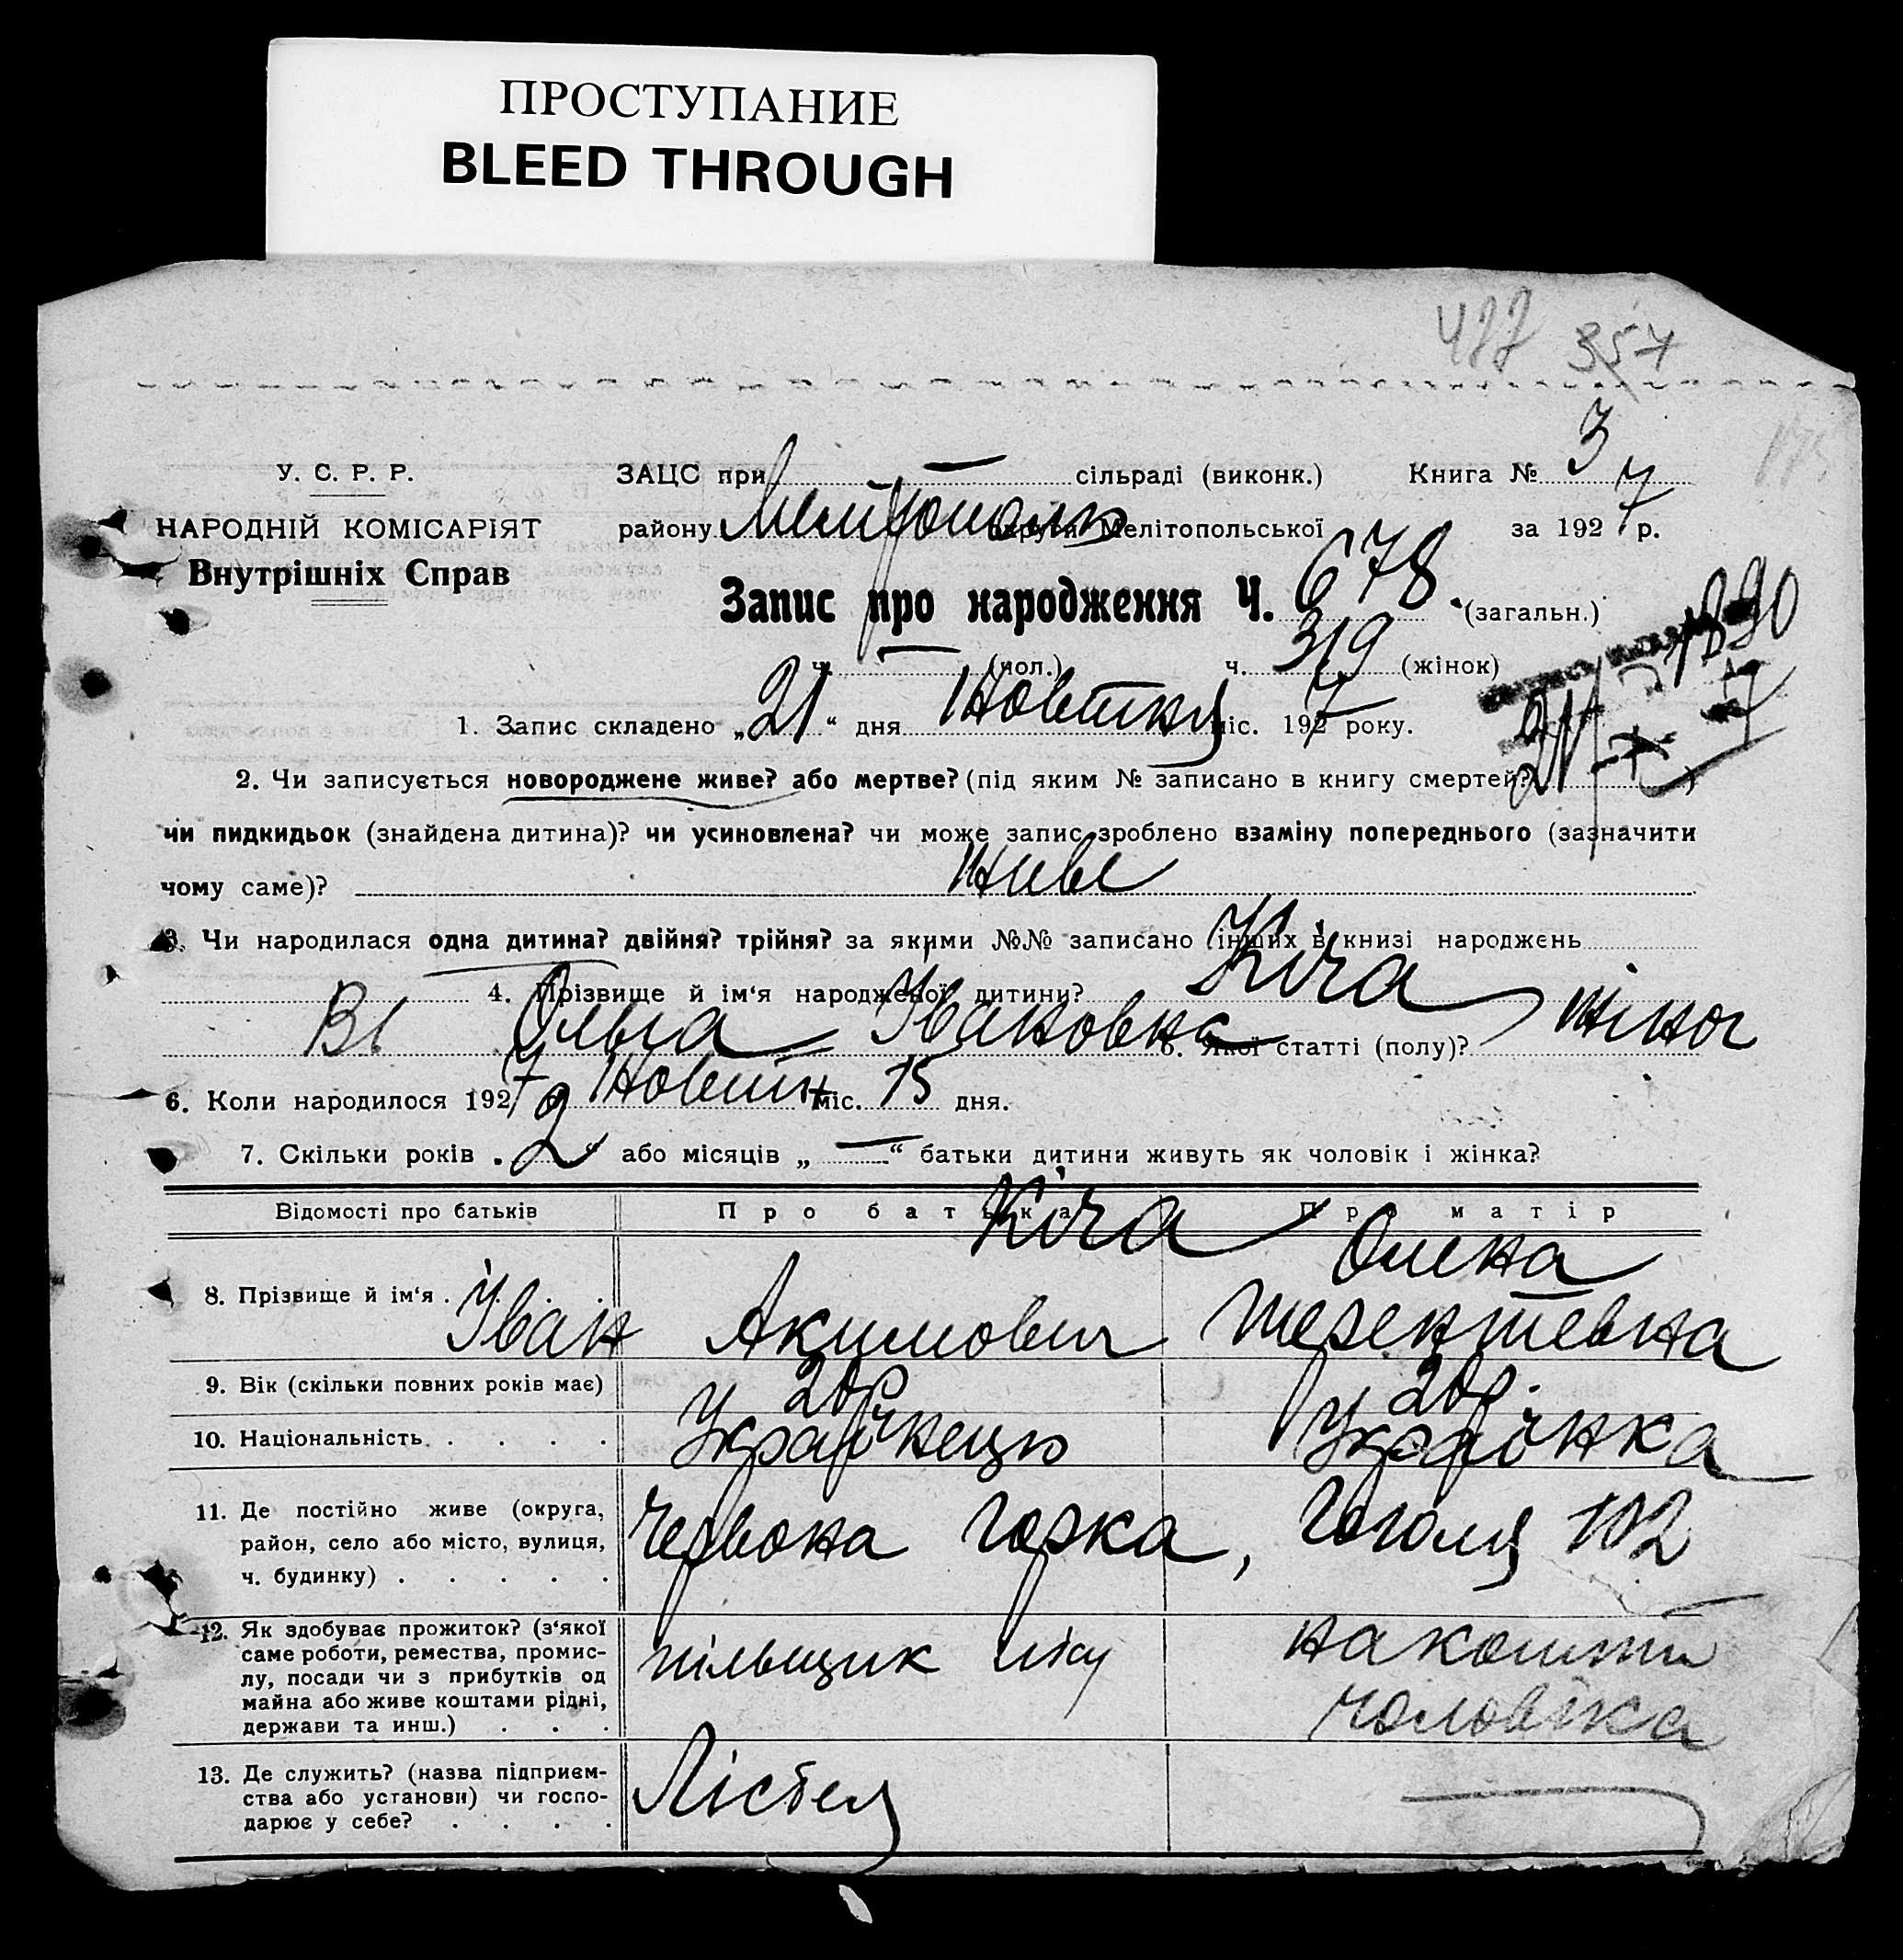 ПРОСТУПАНИЕ
BLEED THROUGH
477 357
175
У. С. Р. Р.
НАРОДНІЙ КОМІСАРІЯТ
Внутрішніх Справ
ЗАЦС при — сільраді (виконк.) Книга № 3
району Мелітополь округи Мелітопольської за 1927 р.
Запис про народження Ч. 678 (загальн.)
ч. — (чол.) ч. 319 (жінок)
1890
1. Запис складено „21“ дня Жовтня міс. 1927 року.
2. Чи записується новороджене живе? або мертве? (під яким № записано в книгу смертей? )
чи пидкидьок (знайдена дитина)? чи усиновлена? чи може запис зроблено взаміну попереднього (зазначити
чому саме)? Живе
3. Чи народилася одна дитина? двійня? трійня? за якими №№ записано інших в книзі народжень
4. Прізвище й ім‘я народженої дитини? Кіча
Ольга Івановна 5. Якої статті (полу)? жіноч
6. Коли народилося 1927 р. Жовтн міс. 15 дня.
7. Скільки років „2“ або місяців „—“ батьки дитини живуть як чоловік і жінка?
Відомості про батьків Про батька Про матір
Кіча
8. Прізвище й ім‘я . Іван Акимович Олена Терентєвна
9. Вік (скільки повних років має) 20р 20р.
10. Національність . . . . Українець Українка
11. Де постійно живе (округа,
район, село або місто, вулиця,
ч. будинку) . . . . .
Червона Горка, Гоголя 102
12. Як здобуває прожиток? (з‘якої
саме роботи, ремества, промис-
лу, посади чи з прибутків од
майна або живе коштами рідні,
держави та инш.) . . .
пільщик лісу
на кошти
чоловіка
13. Де служить? (назва підприєм-
ства або установи) чи госпо-
дарює у себе? . . . .